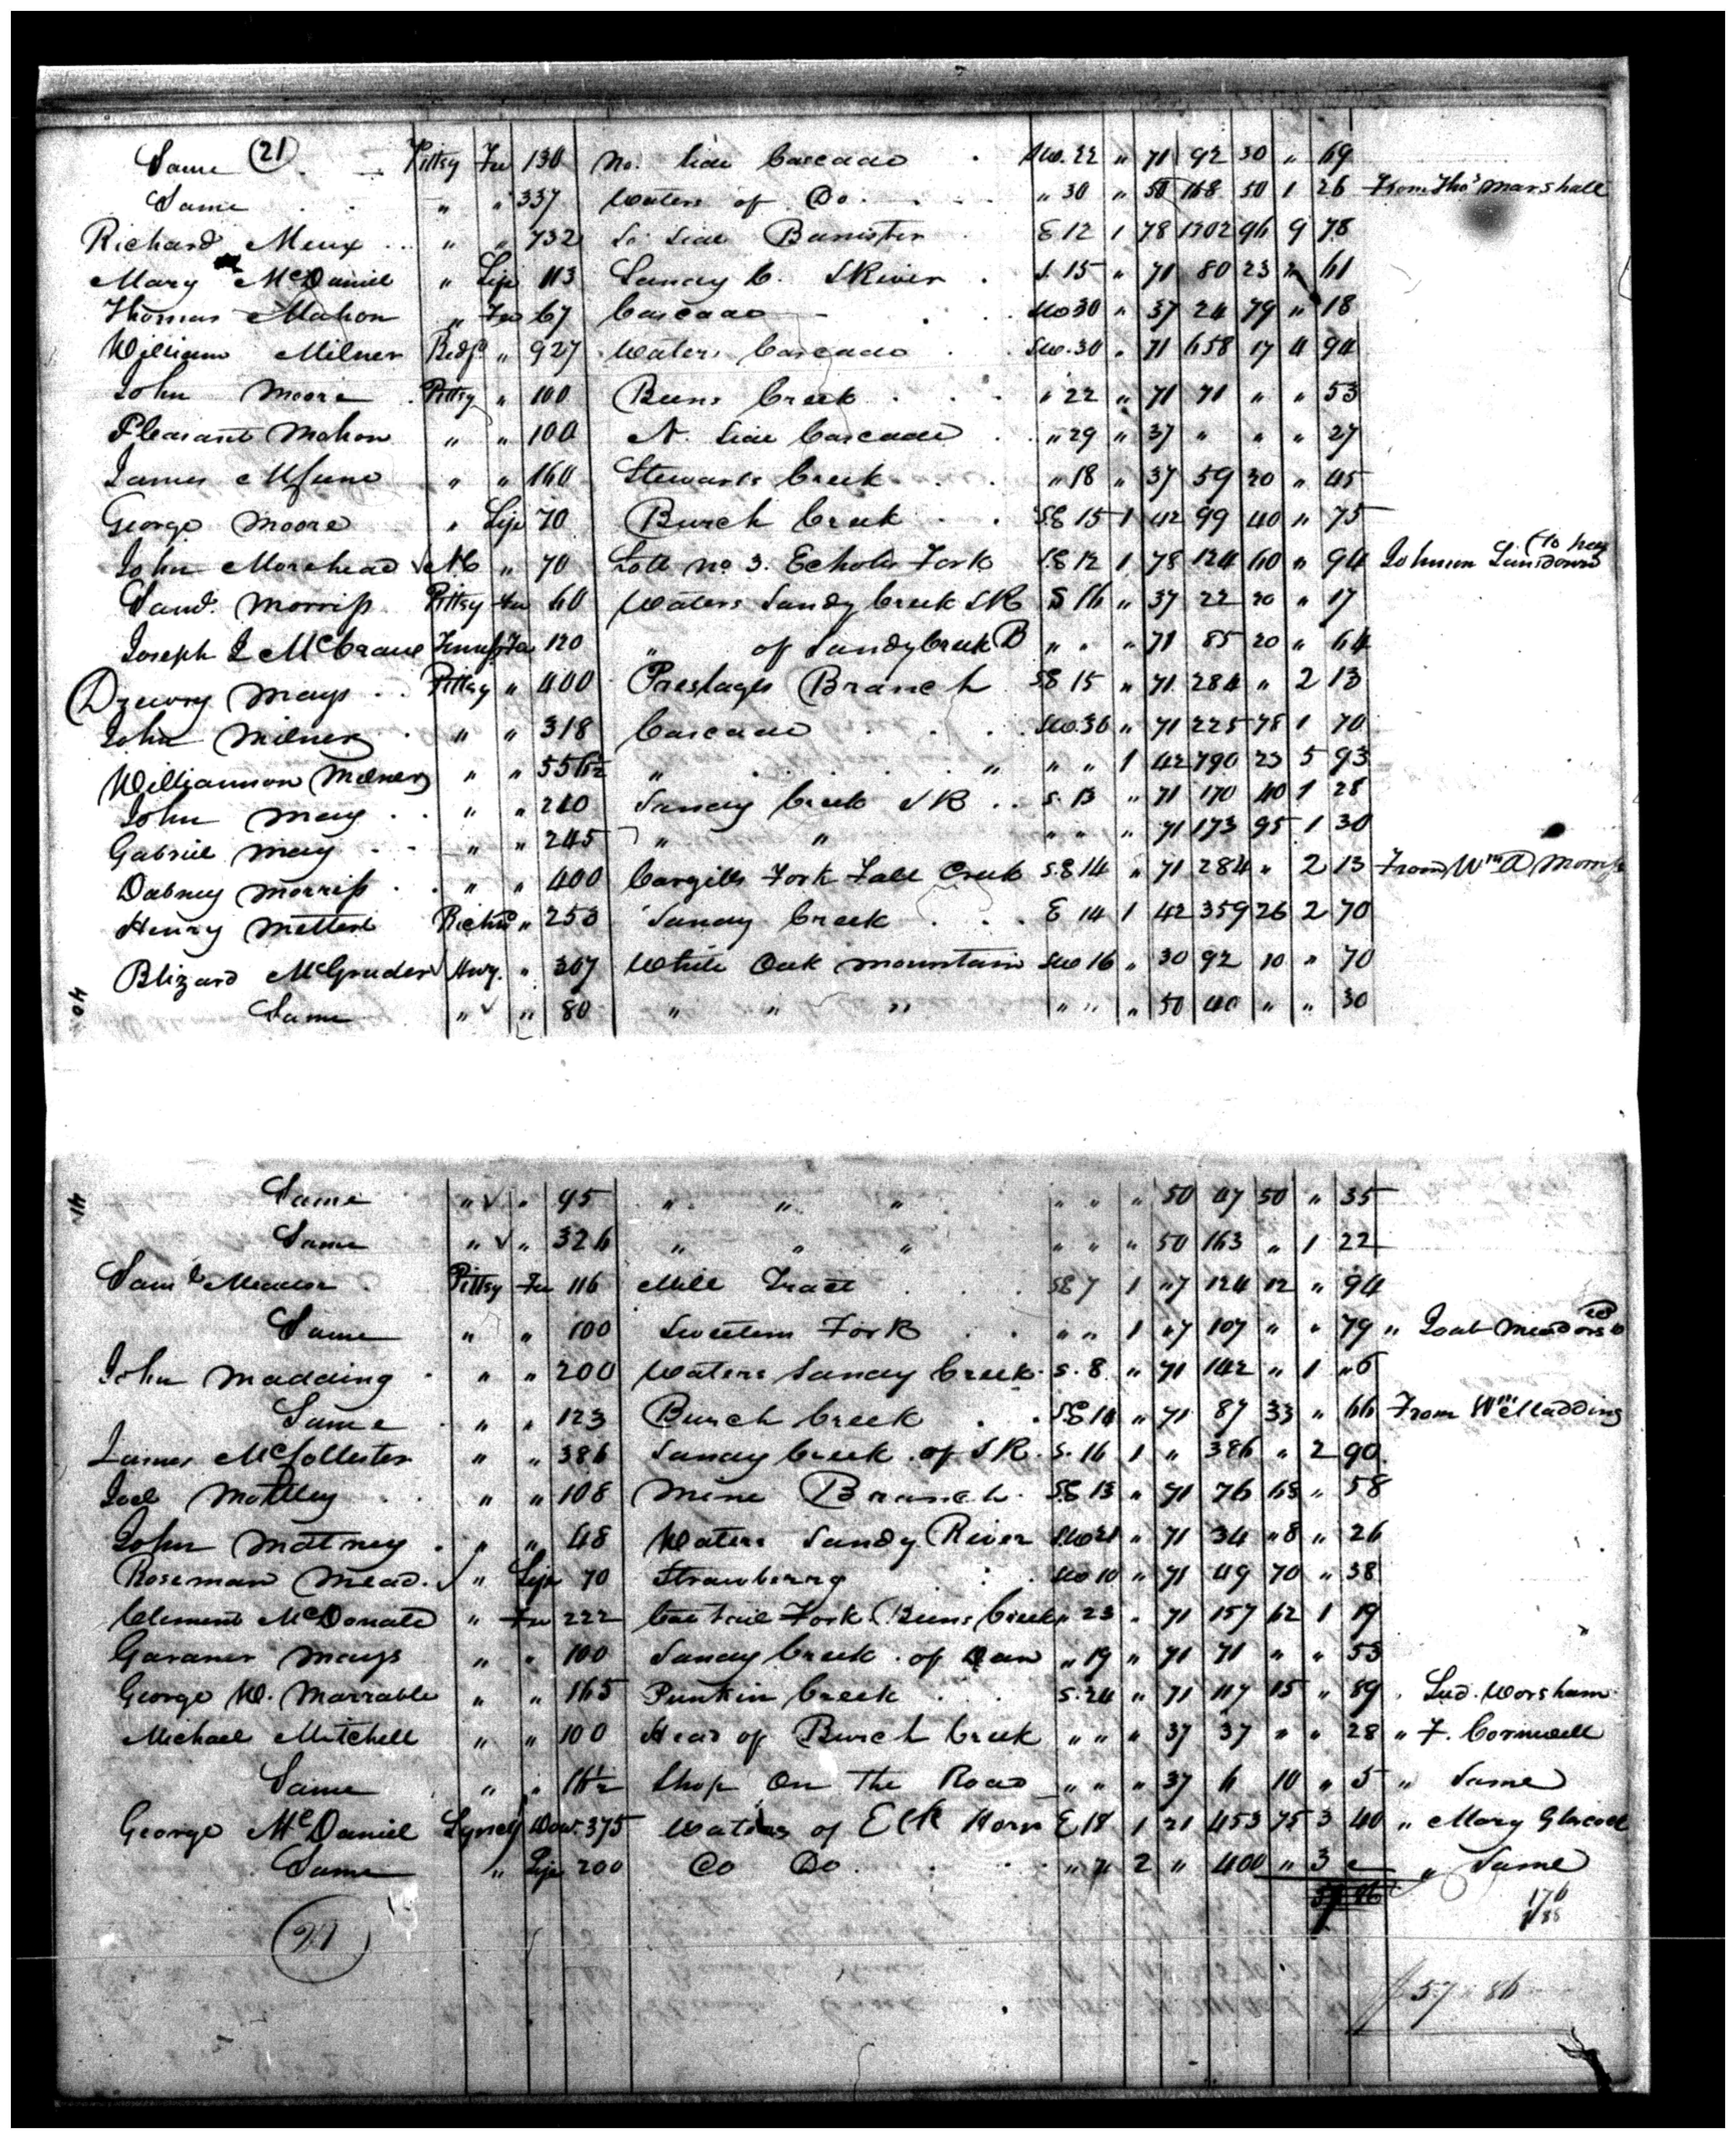 Same (21) Pittsy Fee 130 No. Side Cascade SW. 22 " 71 92 30 " 69
Same " " 337 Waters of Do. " 30 " 50 168 50 1 26 From Thos Marshall
Richard Meux " " 732 So Side Banister E 12 1 78 1302 96 9 78
Mary McDaniel " Life 113 Sandy C. SRiver S. 15 " 71 80 23 " 61
Thomas Mahon " Fee 67 Cascade SW 30 " 37 24 79 " 18
William Milner Bedfd " 927 Waters Cascade SW. 30 " 71 658 17 4 94
John Moore Pittsy " 100 Beens Creek " 22 " 71 71 " " 53
Pleasant Mahon " " 100 N. Side Cascade " 29 " 37 " " " 27
James " " 160 Stewarts Creek " 18 " 37 59 20 " 45
George Moore " Life 70 Burch Creek SE 15 1 42 99 40 " 75
John Morehead NC " 70 Lott no 3. Echols Fork SE 12 1 78 124 60 " 94 Johnson Lansdown (to pay
Saml. Morriss Pittsy Fee 60 Waters Sandy Creek SR S 16 " 37 22 20 " 17
Joseph L McCrane Fee 120 " of Sandy Creek B " " " 71 85 20 " 64
Drewry Mays Pittsy " 400 Prestages Branch SE 15 " 71 284 " 2 13
John Milner " " 318 Cascade SW. 30 " 71 225 78 1 70
Williamson Milner " " 556½ " " " " 1 42 790 23 5 93
John May " " 240 Sandy Creek SR S. 13 " 71 170 40 1 28
Gabriel May " " 245 " " " " " 71 173 95 1 30
Dabney Morriss " " 400 Cargills Fork Fall Creek SE 14 " 71 284 " 2 13 From Wm A Morriss
Henry Mettert Richmd " 253 Sandy Creek E 14 1 42 359 26 2 70
Blizard McGruder " 307 White Oak Mountain SW 16 " 30 92 10 " 70
Same " " 80 " " " " " " 50 40 " " 30
40
41
Same " " 95 " " " " " " 50 47 50 " 35
Same " " 326 " " " " " " 50 163 " 1 22
Saml Meador Pittsy Fee 116 Mill Tract SE 7 1 "7 124 12 " 94
Same " " 100 Sweeten Fork " " 1 "7 107 " " 79 " Joab Meadors
John Madding " " 200 Waters Sandy Creek S. 8 " 71 142 " 1 "6
Same " " 123 Burch Creek SE 14 " 71 87 33 " 66 From Wm Madding
James McCollester " " 386 Sandy Creek of SR S. 16 1 " 386 " 2 90
Joel Motley " " 108 Mine Branch SE 13 " 71 76 68 " 58
John Matney " " 48 Waters Sandy River SW 21 " 71 34 "8 " 26
Roseman Mead " Life 70 Strawberry SW 10 " 71 49 70 " 38
Clement McDonald " Fee 222 Cat Tail Fork Beens Creek " 23 " 71 157 62 1 19
Gardner Mays " " 100 Sandy Creek of Dan " 19 " 71 71 " " 53
George W. Marrable " " 165 Punkin Creek S. 24 " 71 117 15 " 89 " Lud. Worsham
Michael Mitchell " " 100 Head of Burch Creek " " " 37 37 " " 28 " F. Cornwell
Same " " 16½ Shop On The Road " " " 37 6 10 " 5 " Same
George McDaniel Lynchg Dow. 375 Waters of Elk Horn E 18 1 21 453 75 3 40 " Mary Glascock
Same " Life 200 Do Do. " " 2 " 400 " 3 " " Same
176
(21)
57 86